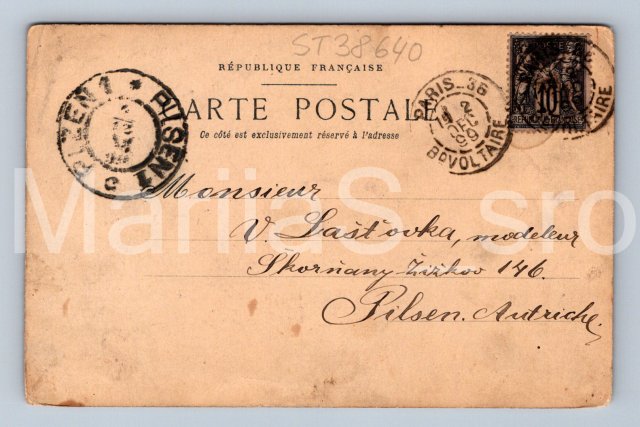 ST38640
RÉPUBLIQUE FRANÇAISE
CARTE POSTALE
Ce côté est exclusivement réservé à l'adresse
PLZEN 1 * PILSEN 1
PARIS_36
2
DEC
99
BD VOLTAIRE
10
Monsieur
V. Lašťovka, modeleur
Skorňany Žižkov 146.
Pilsen. Autriche.
MariiaS sro